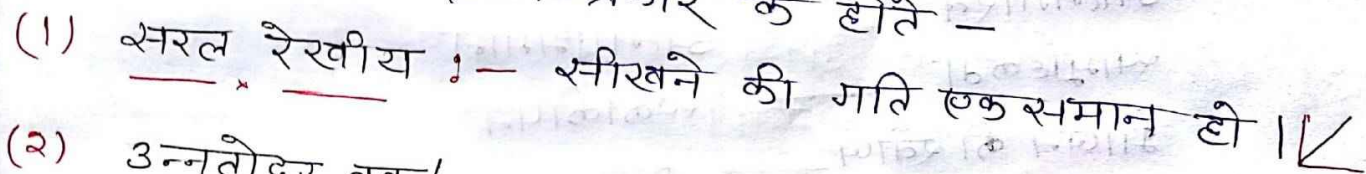 के होते –
(1) सरल रेखीय :– सीखने की गति एक समान हो।
(२) उन्नतोदर